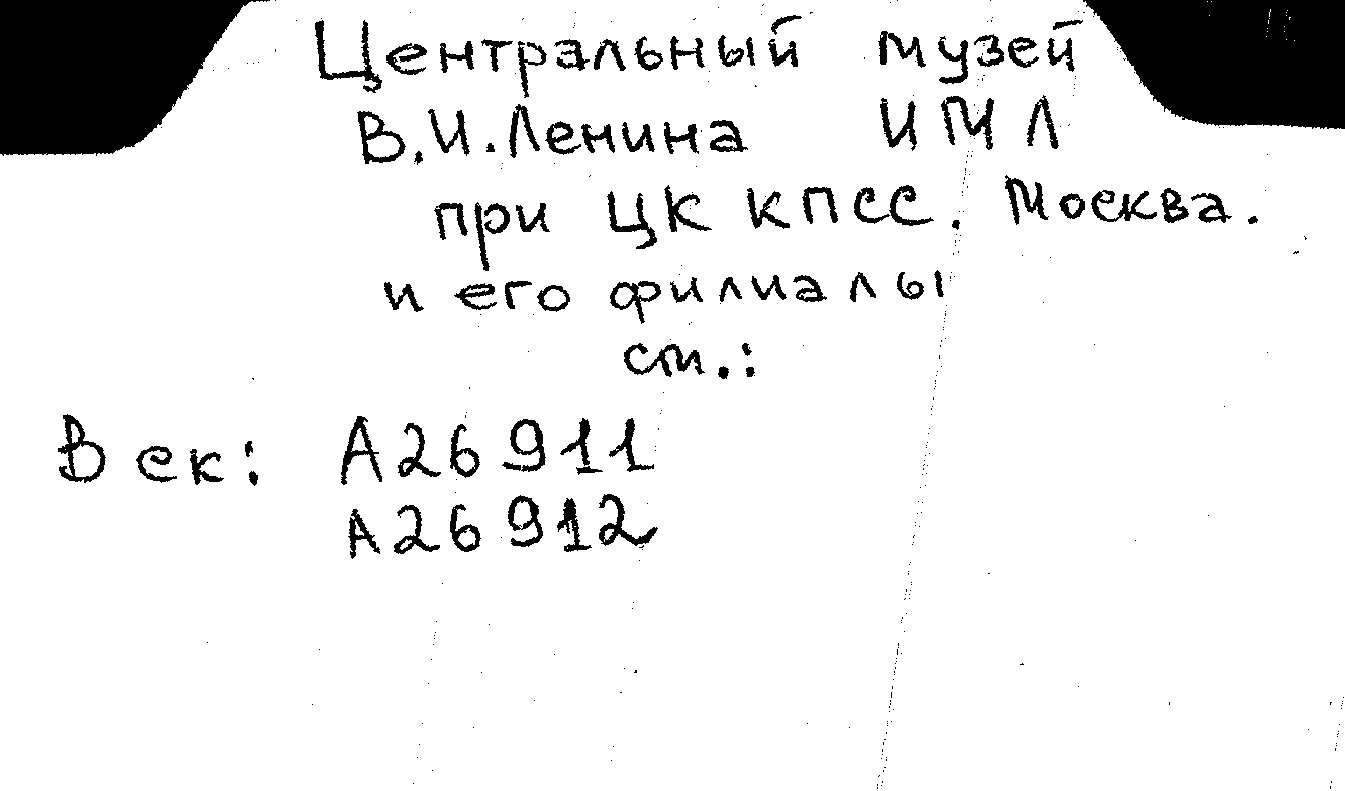 Центральный музей
В.И.Ленина ИМЛ
при ЦК КПСС. Москва.
и его филиалы
см.:
Век: А26911
А26912